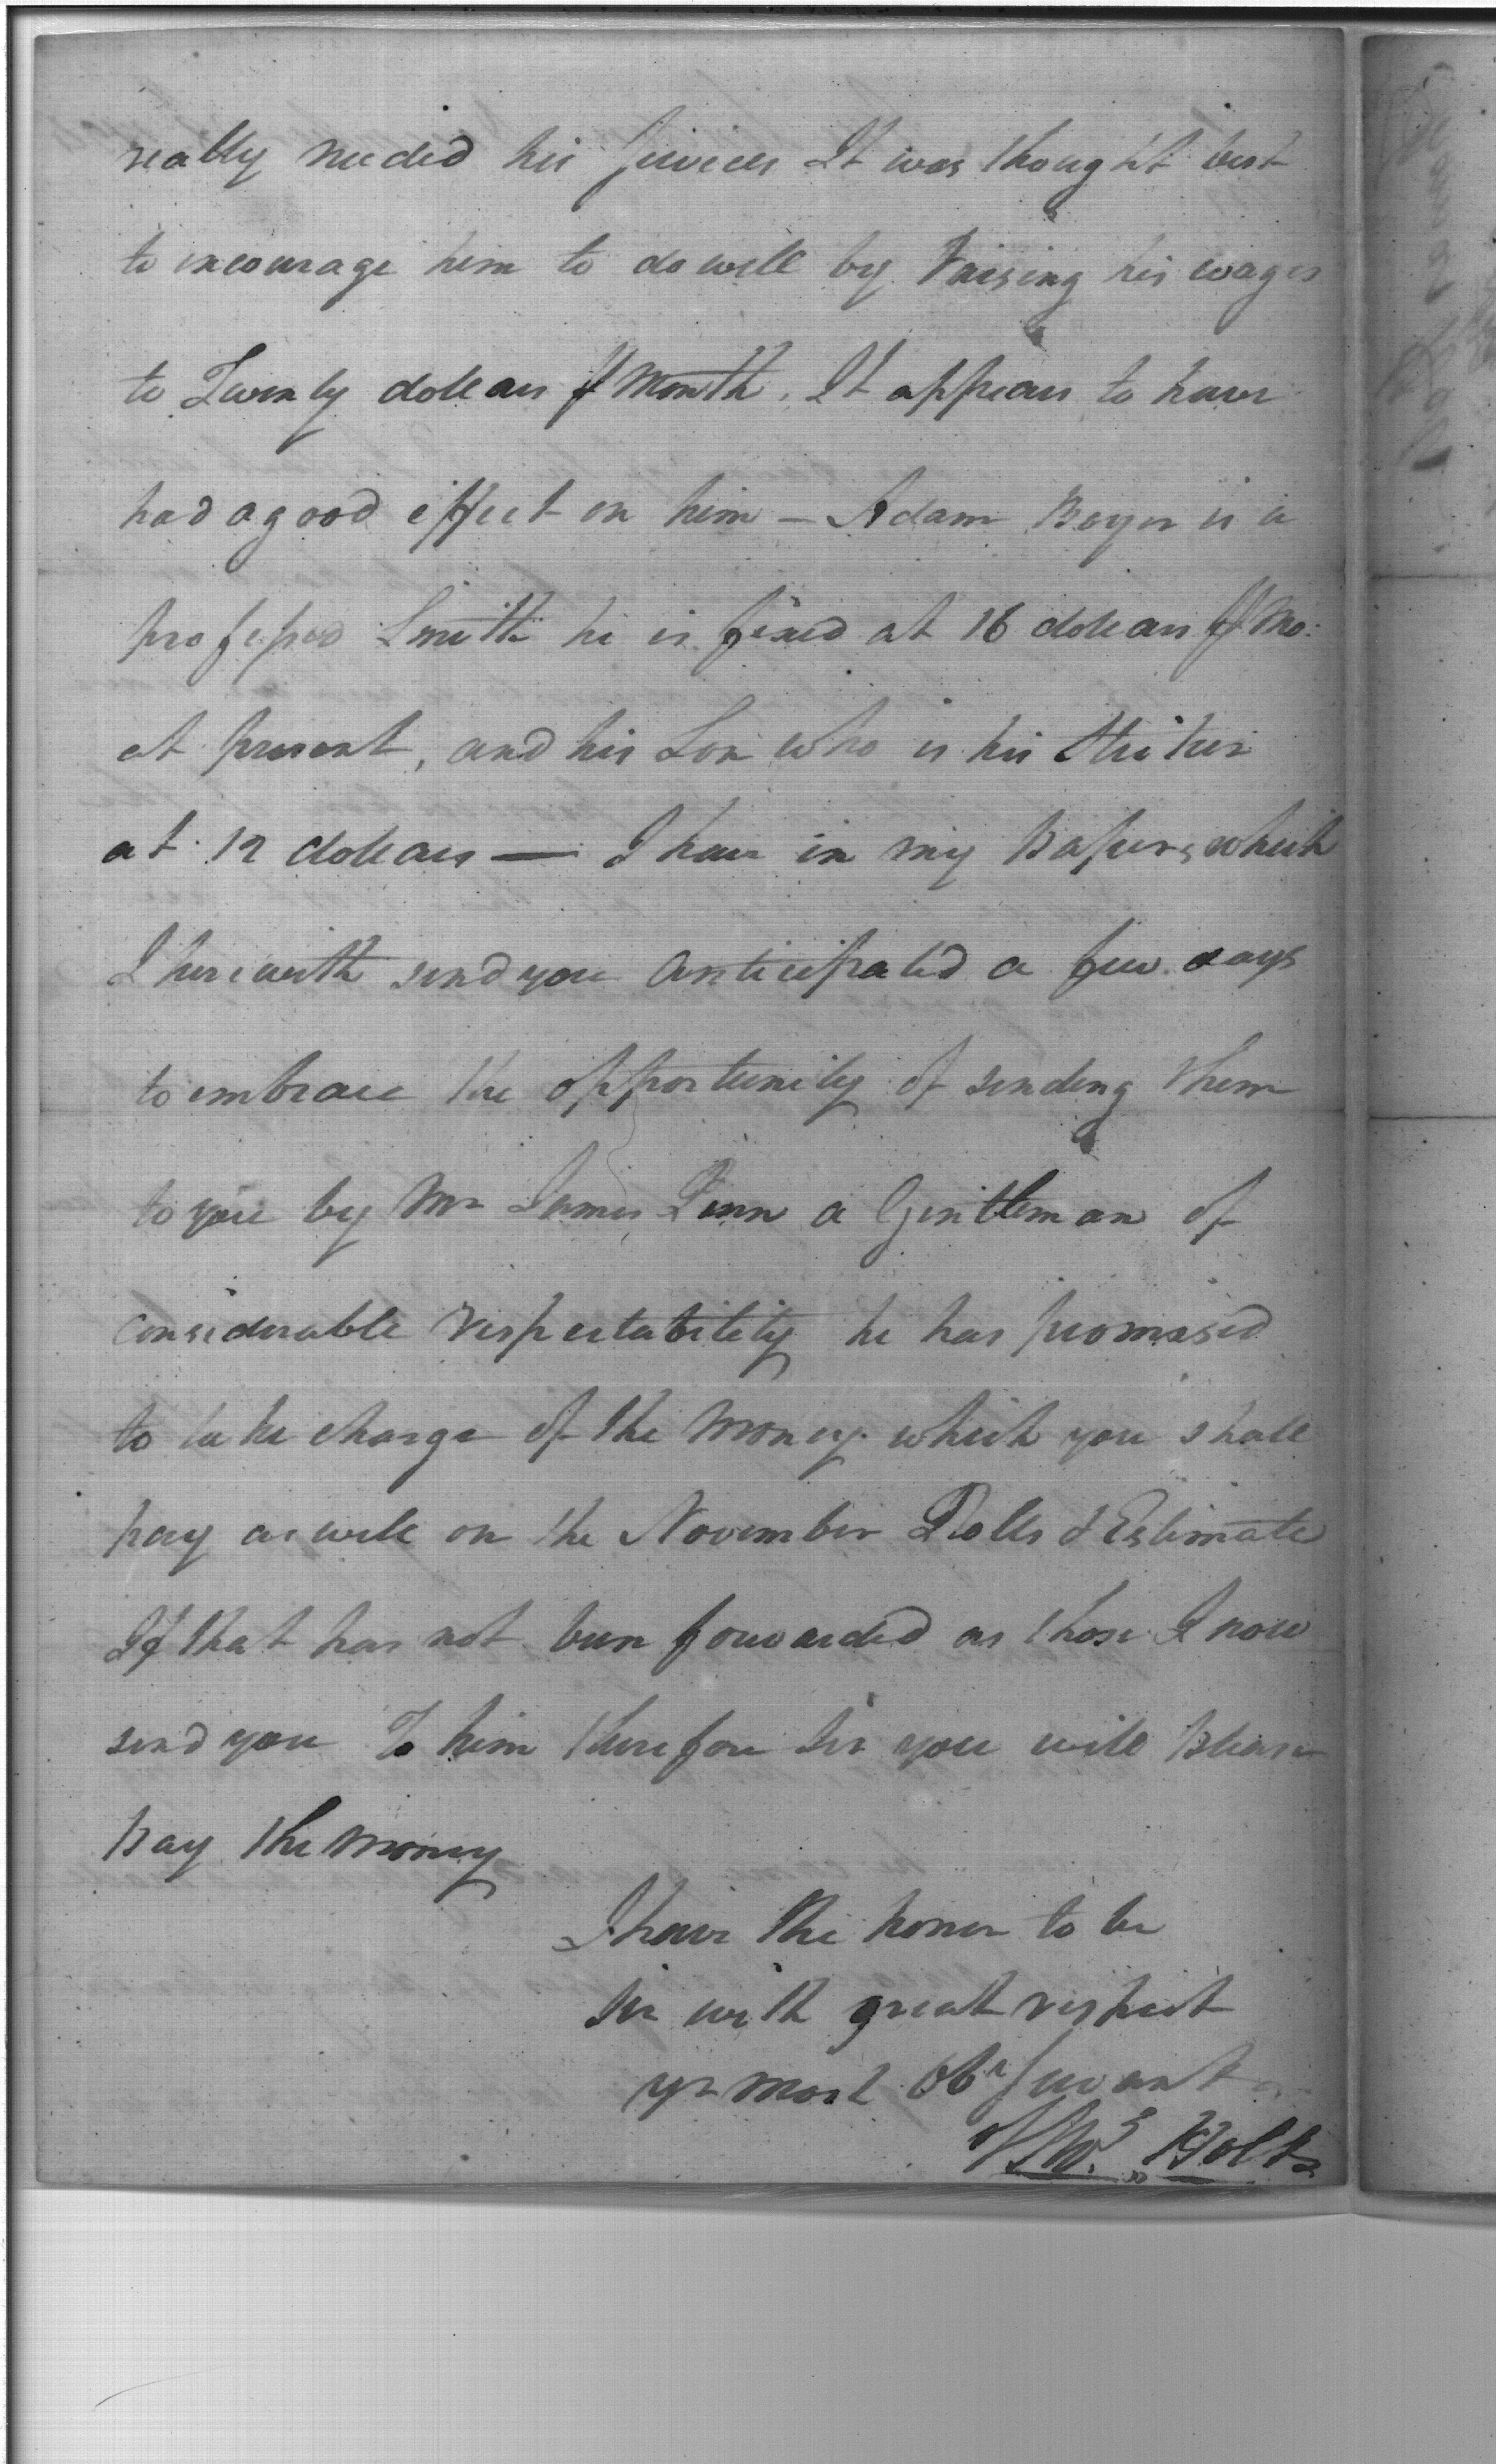 really needed his services It was thought best
to incourage him to do well by Raising his wages
to Twenty dollars ⅌ Month. It appears to have
had a good effect on him — Adam Beyer is a
professed Smith he is fixed at 16 dollars ⅌ Mo:
at present, and his Son who is his Striker
at 12 dollars — I have in my Papers which
I herewith send you anticipated a few days
to embrace the opportunity of sending them
to you by Mr James Penn a Gentleman of
considerable respectability he has promised
to take charge of the money which you shall
pay as well on the November Rolls & Estimate
If that has not been forwarded as those I now
send you To him therefore Sir you will Please
Pay the money
I have the honor to be
Sir with great respect
yr most Obt Servant
Thos Holt